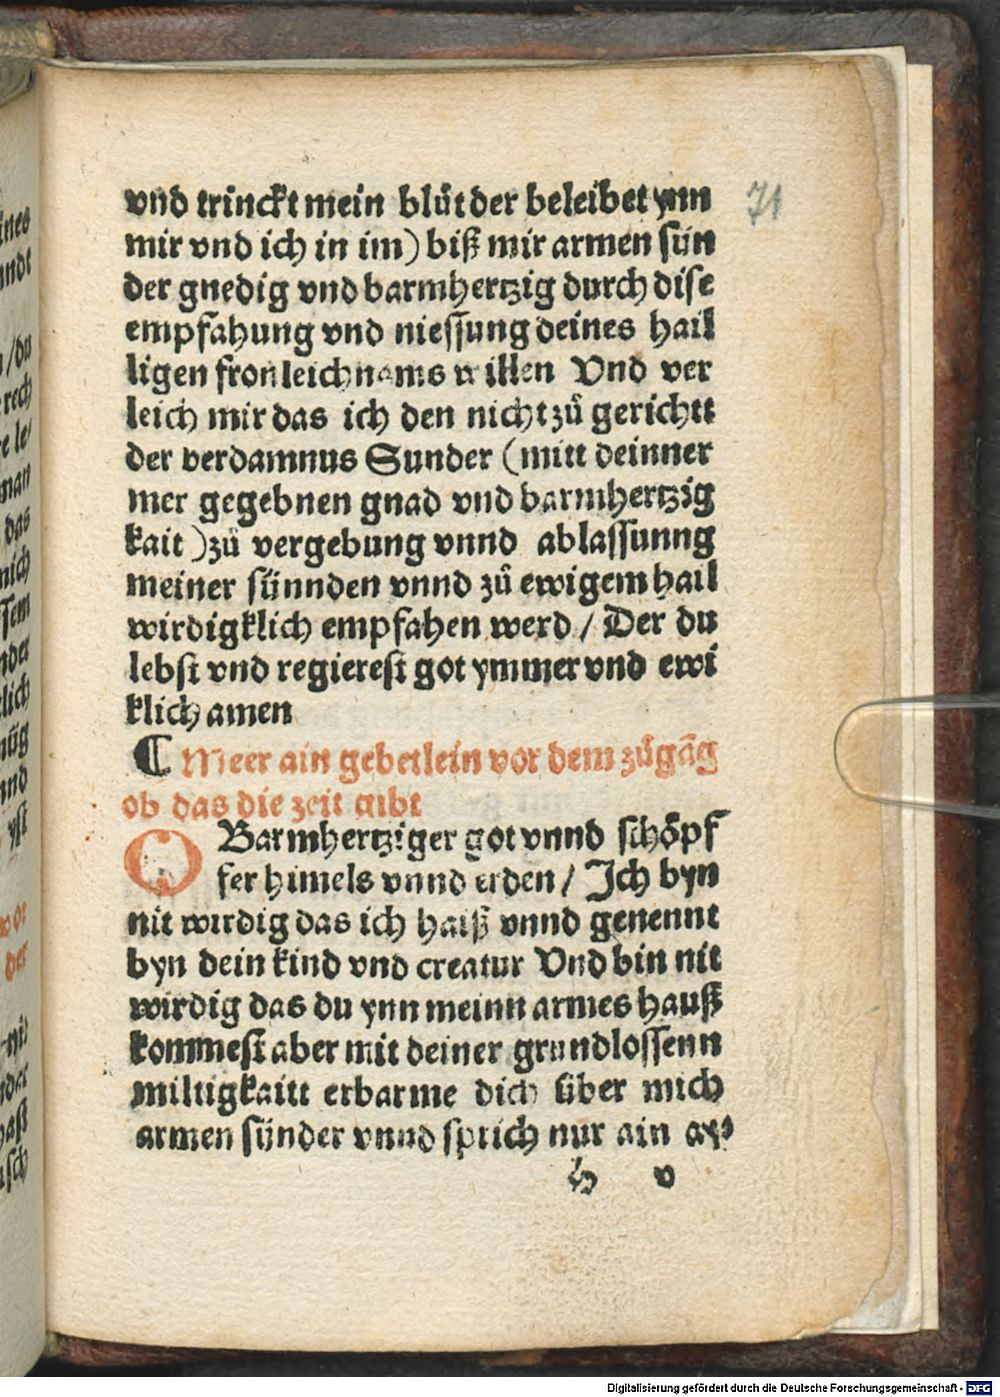 71
vnd trinckt mein blůt der beleibet ynn
mir vnd ich in im) biß mir armen sün
der gnedig vnd barmhertzig durch dise
empfahung vnd niessung deines hail
ligen fronleichnams willen Vnd ver
leich mir das ich den nicht zů gerichtt
der verdamnus Sunder (mitt deinner
mer gegebnen gnad vnd barmhertzig
kait) zů vergebung vnnd ablassunng
meiner sünnden vnnd zů ewigem hail
wirdigklich empfahen werd / Der du
lebst vnd regierest got ymmer vnd ewi
klich amen
¶ Meer ain gebetlein vor dem zůgãg
ob das die zeit gibt
O Barmhertziger got vnnd schöpf
fer himels vnnd erden / Ich byn
nit wirdig das ich haiß vnnd genennt
byn dein kind vnd creatur Vnd bin nit
wirdig das du ynn meinn armes hauß
kommest aber mit deiner grundlossenn
miltigkaitt erbarme dich über mich
armen sünder vnnd sprich nur ain
h v
ines
/du
rech
le/
man
das
mich
ssem
lich
nüg
nnd
yst
vor
der
Digitalisierung gefördert durch die Deutsche Forschungsgemeinschaft - DFG